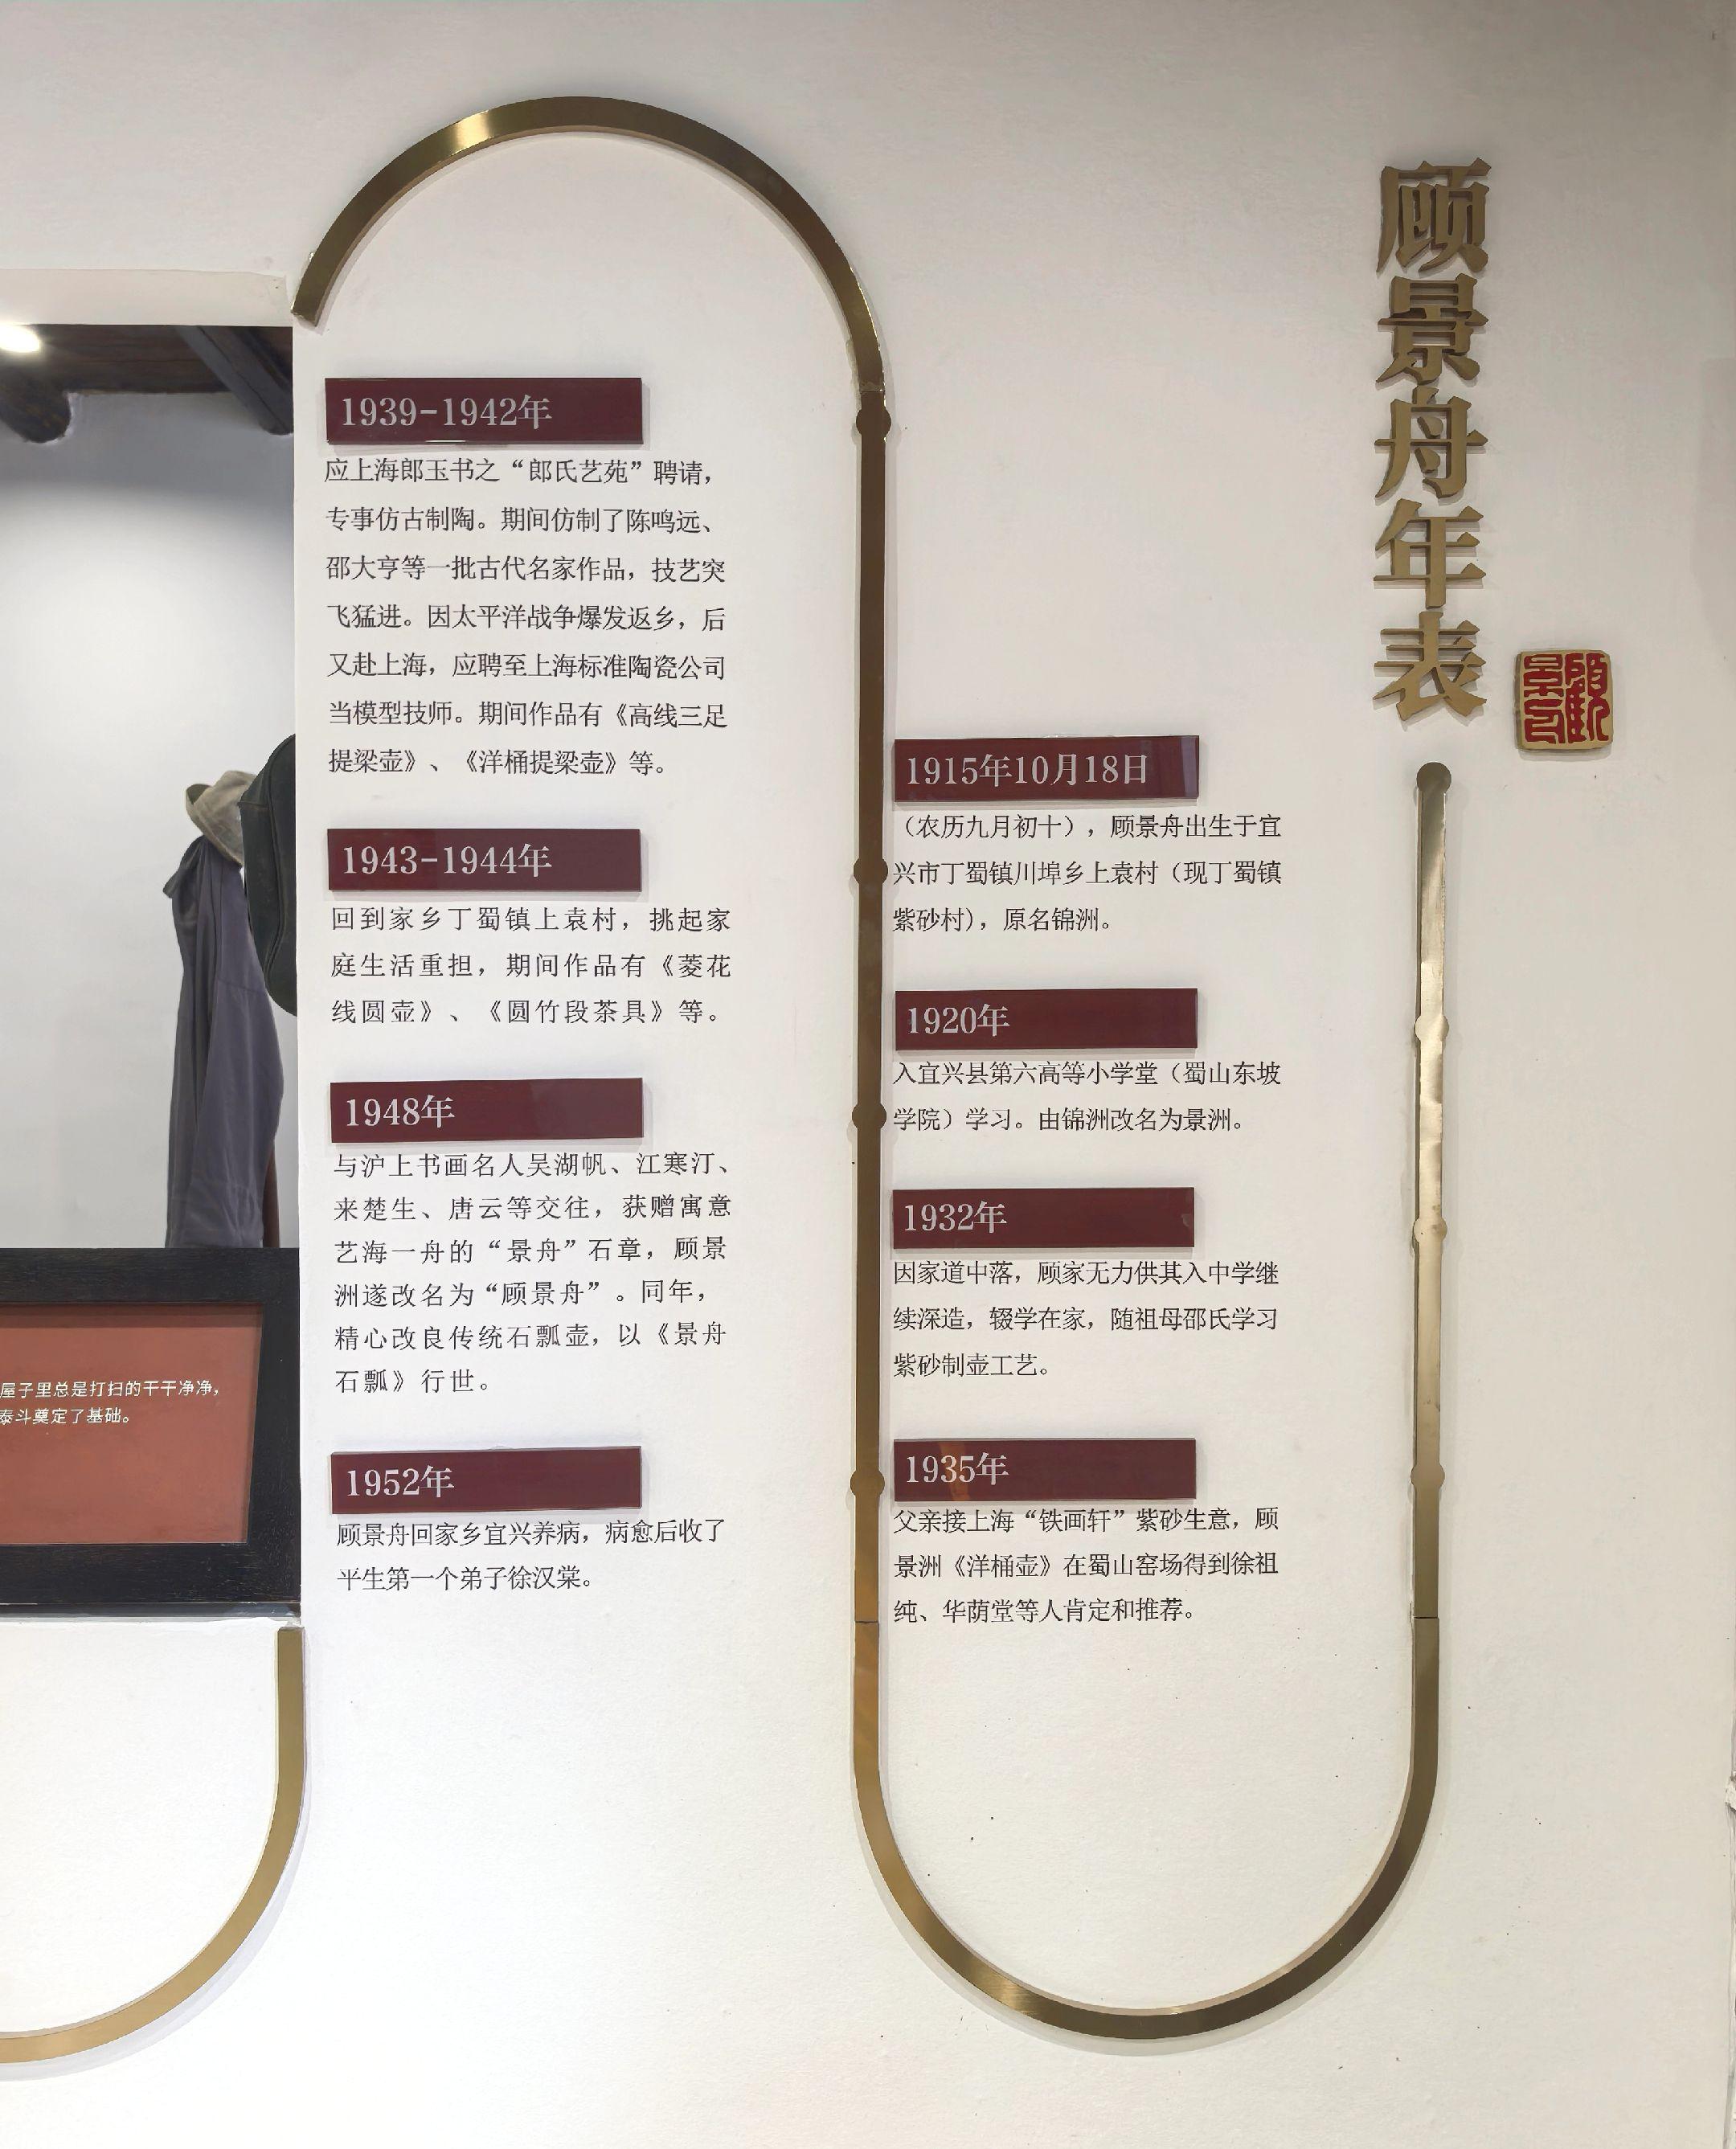 顾景舟年表
1915年10月18日
（农历九月初十），顾景舟出生于宜
兴市丁蜀镇川埠乡上袁村（现丁蜀镇
紫砂村），原名锦洲。
1920年
入宜兴县第六高等小学堂（蜀山东坡
学院）学习。由锦洲改名为景洲。
1932年
因家道中落，顾家无力供其入中学继
续深造，辍学在家，随祖母邵氏学习
紫砂制壶工艺。
1935年
父亲接上海“铁画轩”紫砂生意，顾
景洲《洋桶壶》在蜀山窑场得到徐祖
纯、华荫堂等人肯定和推荐。
1939-1942年
应上海郎玉书之“郎氏艺苑”聘请，
专事仿古制陶。期间仿制了陈鸣远、
邵大亨等一批古代名家作品，技艺突
飞猛进。因太平洋战争爆发返乡，后
又赴上海，应聘至上海标准陶瓷公司
当模型技师。期间作品有《高线三足
提梁壶》、《洋桶提梁壶》等。
1943-1944年
回到家乡丁蜀镇上袁村，挑起家
庭生活重担，期间作品有《菱花
线圆壶》、《圆竹段茶具》等。
1948年
与沪上书画名人吴湖帆、江寒汀、
来楚生、唐云等交往，获赠寓意
艺海一舟的“景舟”石章，顾景
洲遂改名为“顾景舟”。同年，
精心改良传统石瓢壶，以《景舟
石瓢》行世。
1952年
顾景舟回家乡宜兴养病，病愈后收了
平生第一个弟子徐汉棠。
屋子里总是打扫的干干净净，
泰斗奠定了基础。